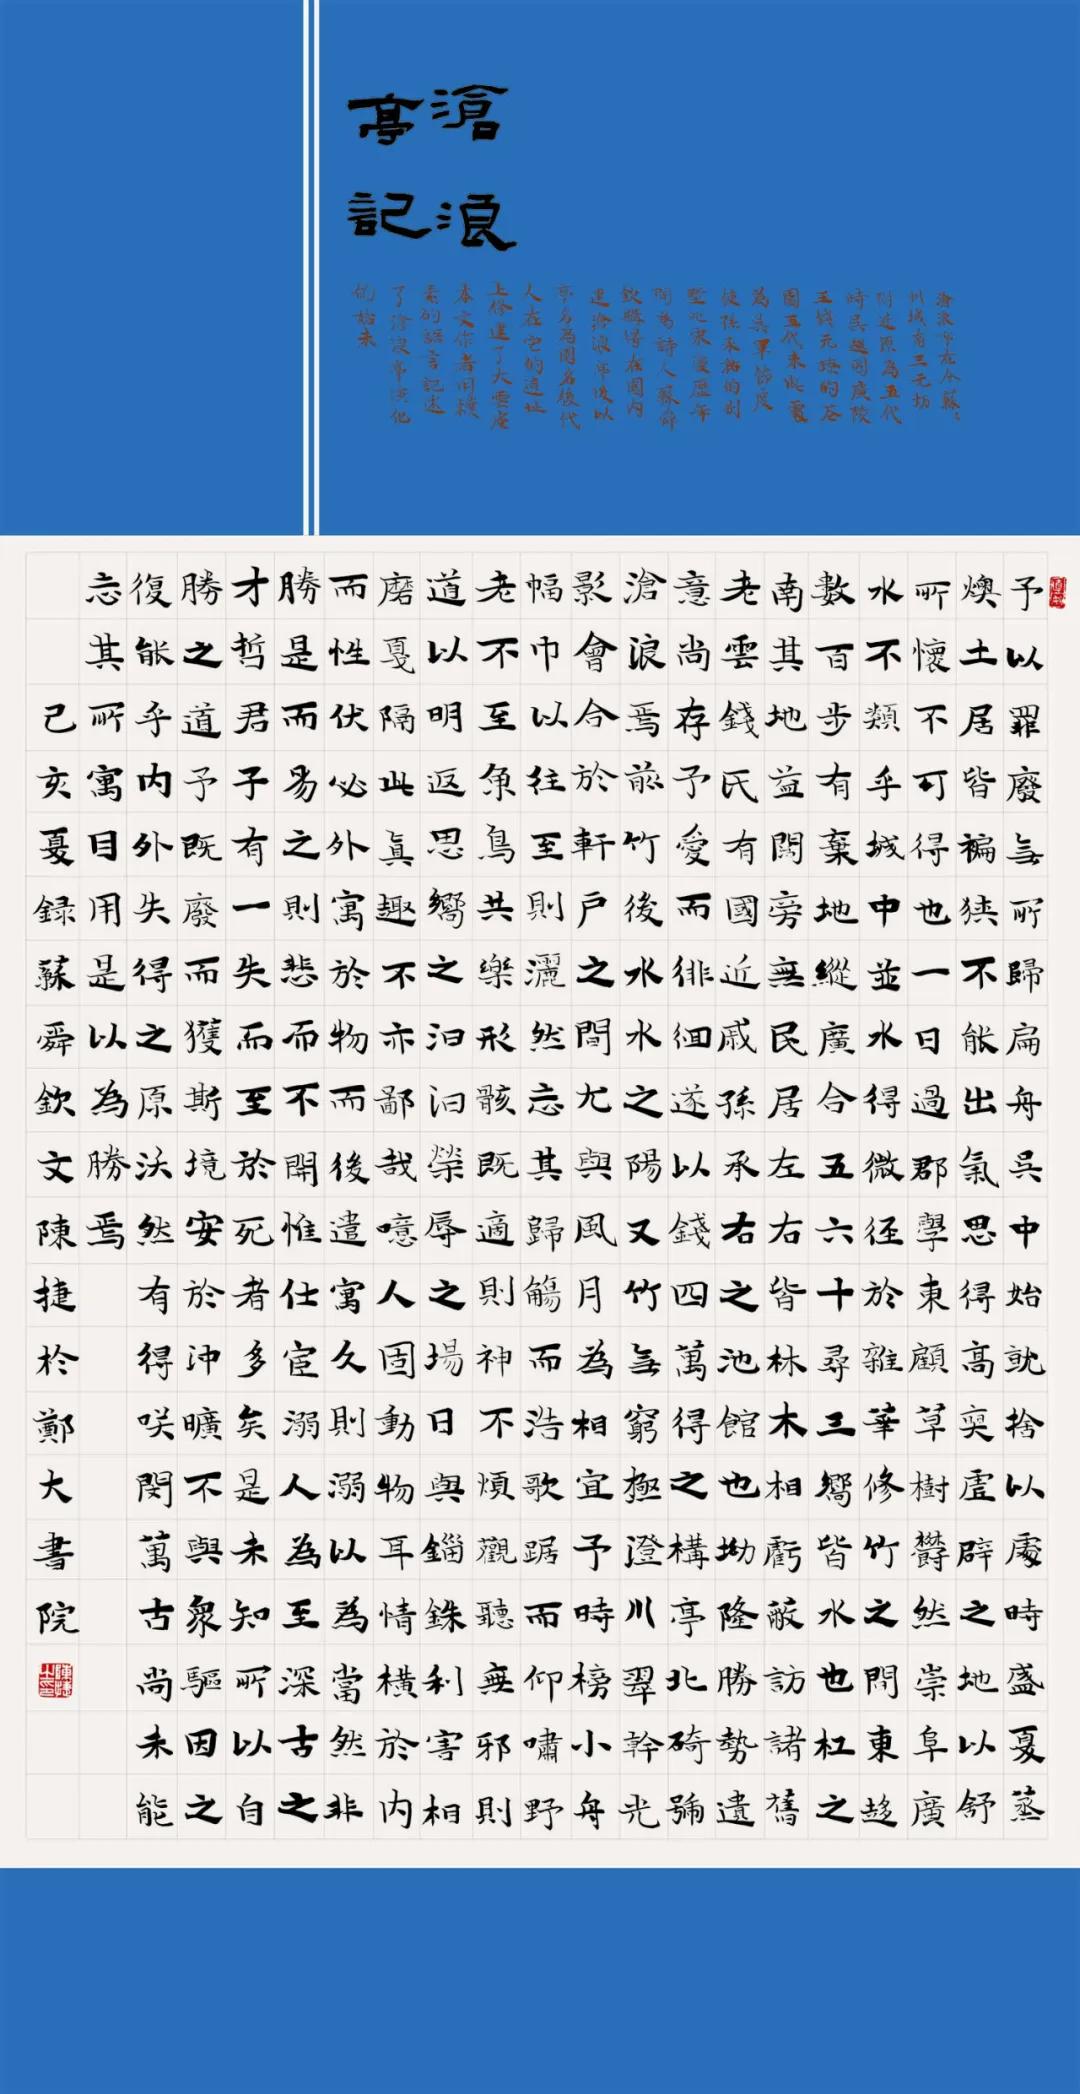 滄浪
亭記
滄浪亭在今蘇：
州城南三元坊
附近原為五代
時吳越國廣陵
王錢元璙的花
園五代末此處
為吳軍節度
使孫承祐的別
墅北宋慶歷年
間為詩人蘇舜
欽購得在園內
建滄浪亭後以
亭名為園名後代
人在它的遺址
上修建了大雲庵
本文作者用樸
素的語言記述
了滄浪亭演化
的始末
予以罪廢無所歸扁舟吳中始訧捨以處時盛夏蒸
燠土居皆褊狹不能出氣思得高爽虛辟之地以舒
所懷不可得也一日過郡學東顧草樹鬱然崇阜廣
水不類乎城中並水得微徑於雜華修竹之間東趍
數百步有棄地縱廣合五六十尋三嚮皆水也杠之
南其地益闊旁無民居左右皆林木相虧蔽訪諸舊
老雲錢氏有國近戚孫承右之池館也坳隆勝勢遺
意尚存予愛而徘徊遂以錢四萬得之構亭北碕號
滄浪焉前竹後水水之陽又竹無窮極澄川翠幹光
影會合於軒戶之間尤與風月為相宜予時榜小舟
幅巾以往至則灑然忘其歸觴而浩歌踞而仰嘯野
老不至魚鳥共樂形骸既適則神不煩觀聽無邪則
道以明返思嚮之汩汩榮辱之場日與錙銖利害相
磨戛隔此真趣不亦鄙哉噫人固動物耳情橫於內
而性伏必外寓於物而後遣寓久則溺以為當然非
勝是而易之則悲而不開惟仕宦溺人為至深古之
才哲君子有一失而至於死者多矣是未知所以自
勝之道予既廢而獲斯境安於沖曠不與眾驅因之
復能乎內外失得之原沃然有得咲閔萬古尚未能
忘其所寓目用是以為勝焉
己亥夏録蘇舜欽文陳捷於鄭大書院